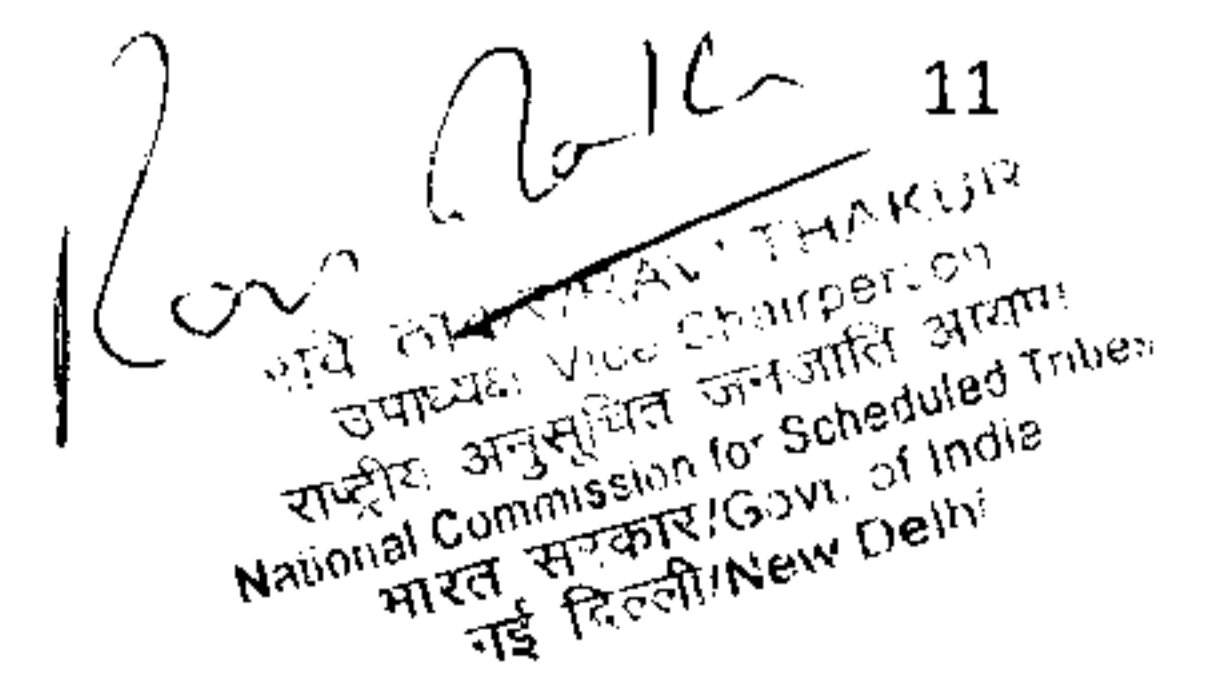 11
रवि ठाकुर/RAVI THAKUR
उपाध्यक्ष/Vice Chairperson
राष्ट्रीय अनुसूचित जनजाति आयोग
National Commission for Scheduled Tribes
भारत सरकार/Govt. of India
नई दिल्ली/New Delhi